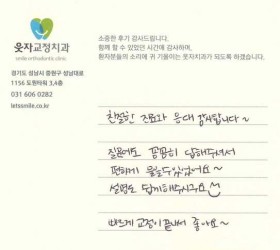 웃자교정치과
smile orthodontic clinic
경기도 성남시 중원구 성남대로
1156 도원타워 3,4층
031 606 0282
letssmile.co.kr
소중한 후기 감사드립니다.
함께 할 수 있었던 시간에 감사하며,
환자분들의 소리에 귀 기울이는 웃자치과가 되도록 하겠습니다.
친절한 진료와 응대 감사합니다~
질문에도 꼼꼼히 답해주셔서
편하게 물을 수 있었어요~
설명도 쉽게 해주시구요
빠르게 교정이 끝나서 좋아요~